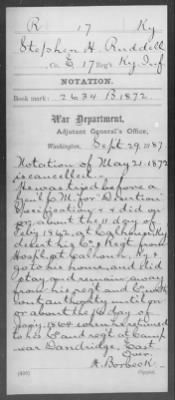 R 17 Ky
Stephen H. Ruddell
Co. E, 17 Reg't Ky. Inf.
NOTATION.
Book mark: 2634 B 1872
War Department,
Adjutant General's Office,
Washington, Sept 29, 1887.
Notation of May 21 1872
is cancelled.
He was tried before a
Gen'l C. M. for Desertion
Specification & did on
or about the 11 day of
Feb'y 1862, at Calhoun Ky
desert his Co & Regt from
Hosp'l at Calhoun, Ky &
go to his home, and did
stay and remain away
from his regt and Co with
out authority until on
or about the day of
Jan'y 1864 when he returned
to his Co and regt at Camp
near Dandridge, East
Over.
A. Borbeck
(498) Copyist.